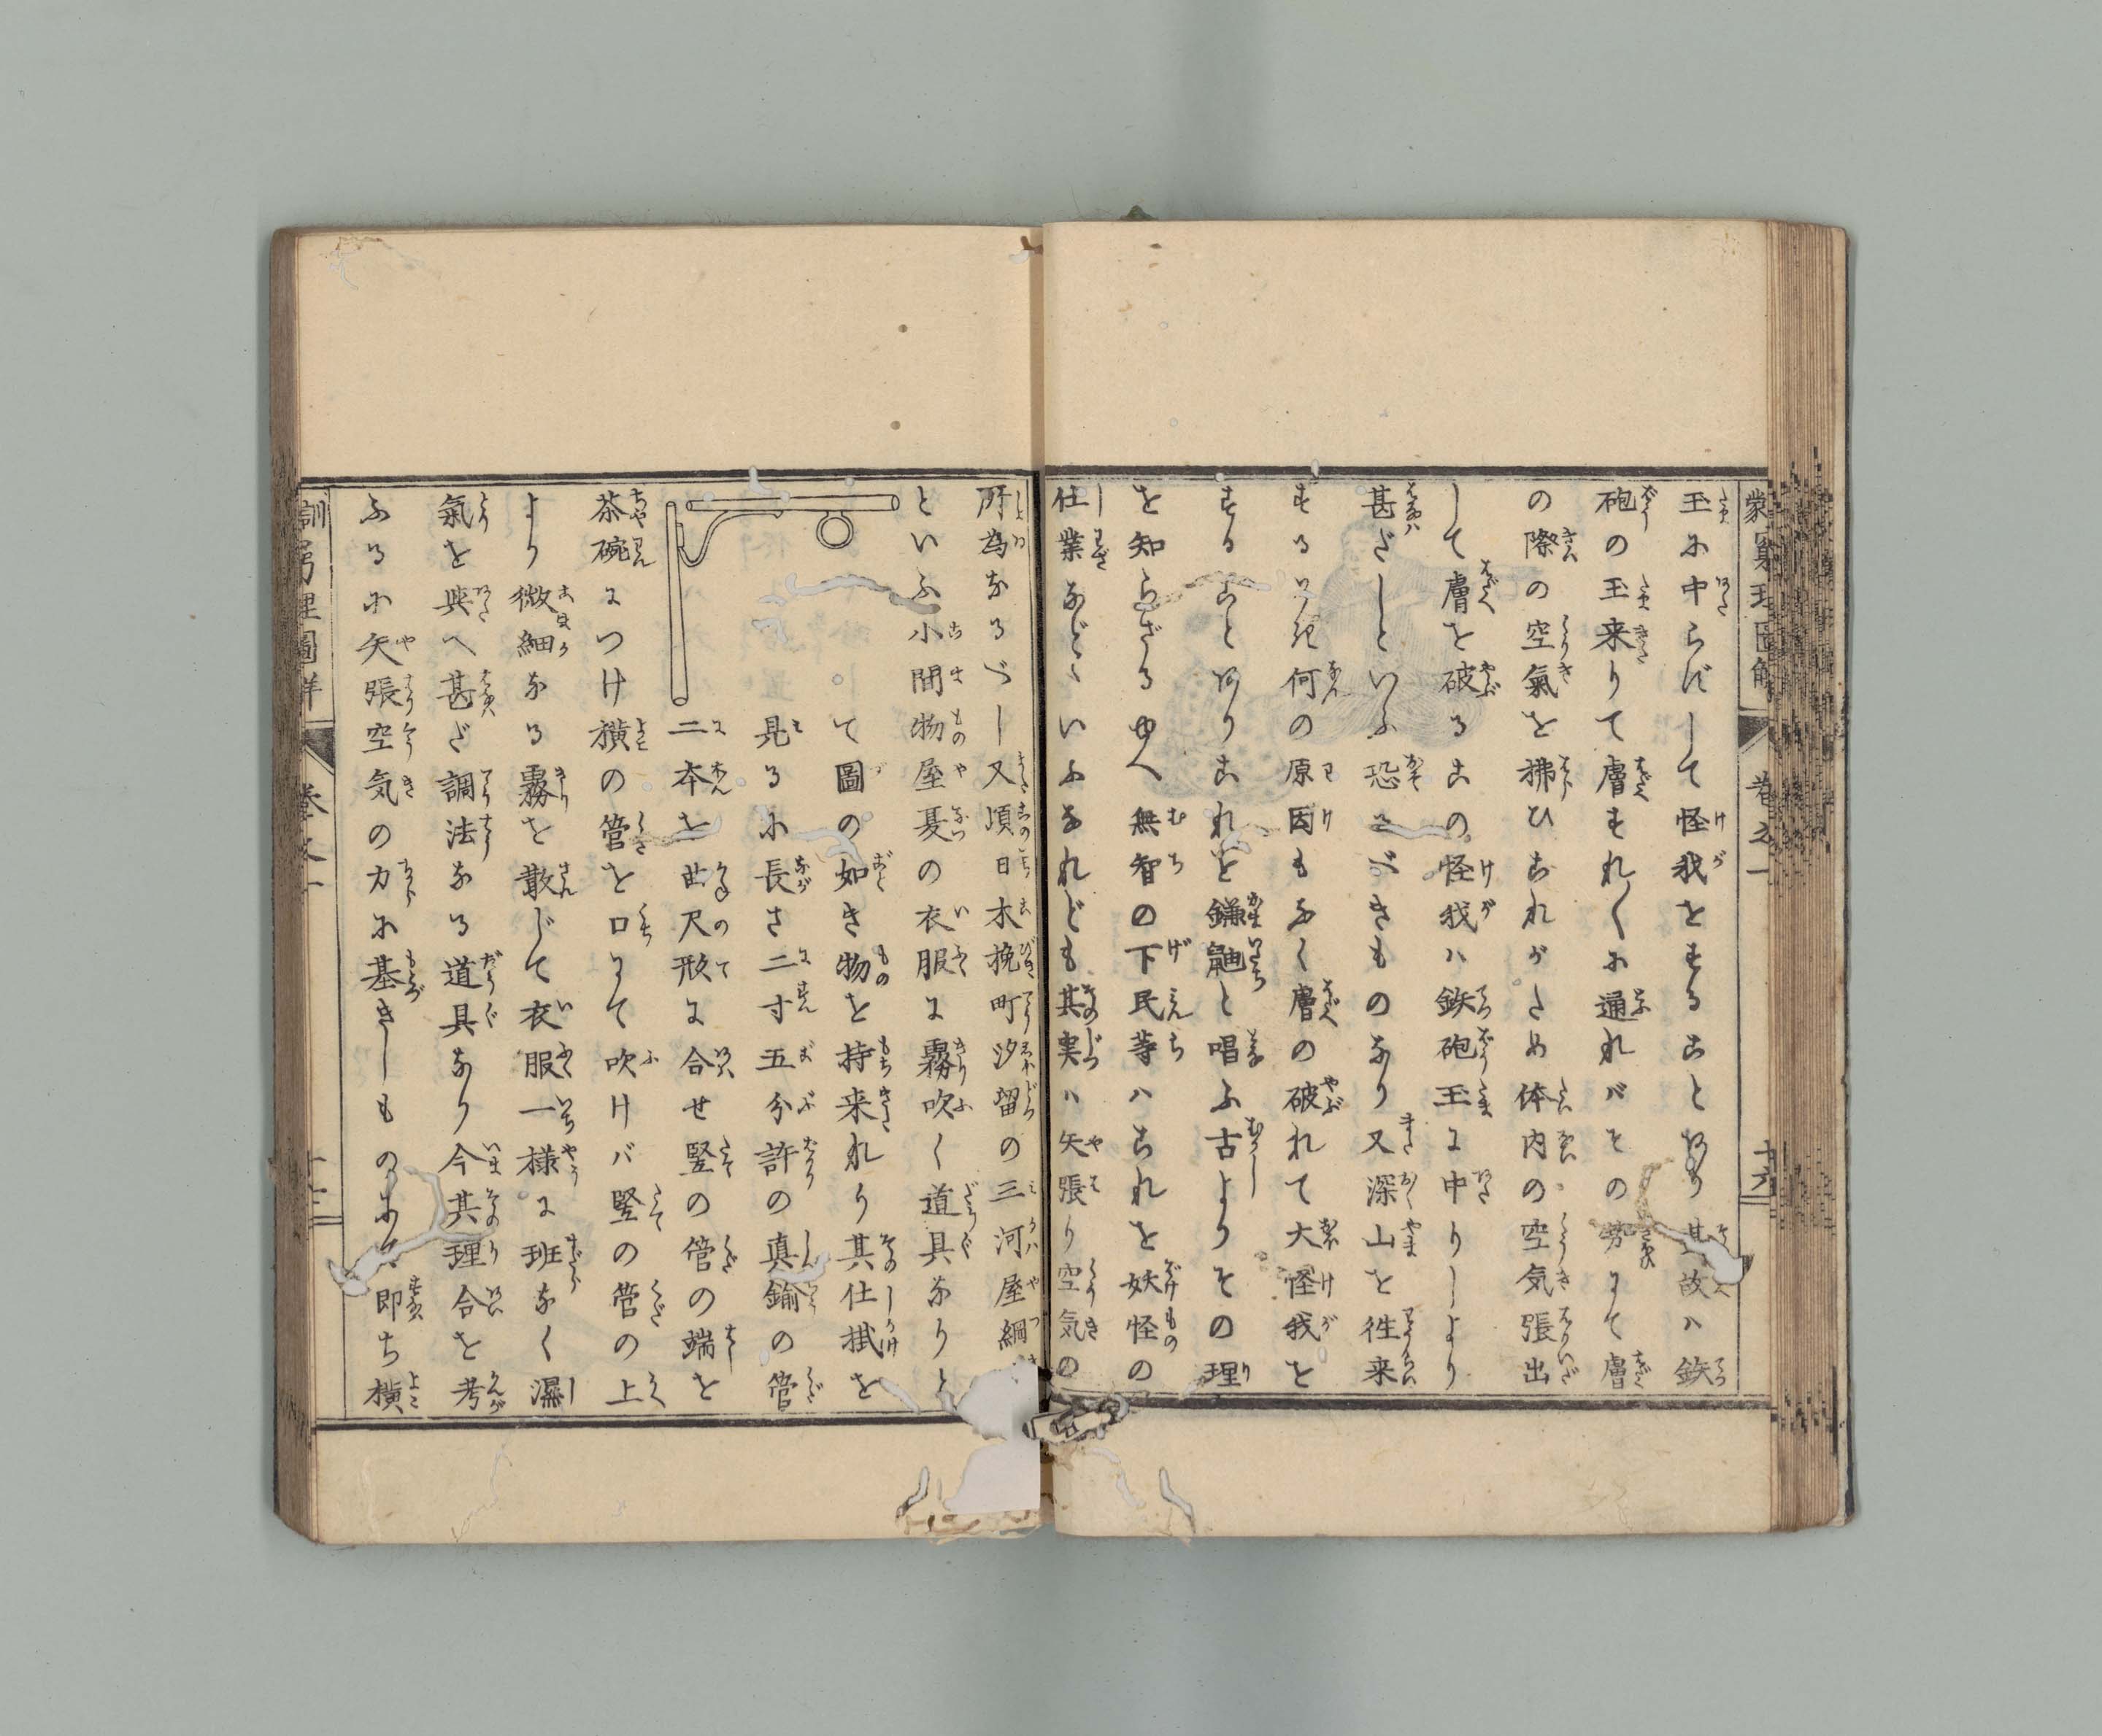 玉に中らずして怪我をすることあり其故ハ鉄
砲の玉来りて膚すれ〱に通れバその勢にて膚
の際の空氣を拂ひこれがため体内の空気張出
して膚を破るこの怪我ハ鉄砲玉に中りしより
甚だしといふ恐るべきものなり又深山を徃来
するとき何の原因もなく膚の破れて大怪我を
することありこれを鎌鼬と唱ふ古よりその理
を知らざるゆへ無智の下民等ハこれを妖怪の
仕業などゝいふなれども其実ハ矢張り空気の
所為なるべし又頃日木挽町汐留の三河屋綱
といふ小間物屋夏の衣服に霧吹く道具なりと
て圖の如き物を持来れり其仕掛を
見るに長さ二寸五分許の真鍮の管
二本を曲尺形に合せ竪の管の端を
茶碗につけ横の管を口にて吹けバ竪の管の上
より微細なる霧を散じて衣服一様に班なく濕
氣を與へ甚だ調法なる道具なり今其理合を考
ふるに矢張空気の力に基きしものにて即ち横
巻之一
十六